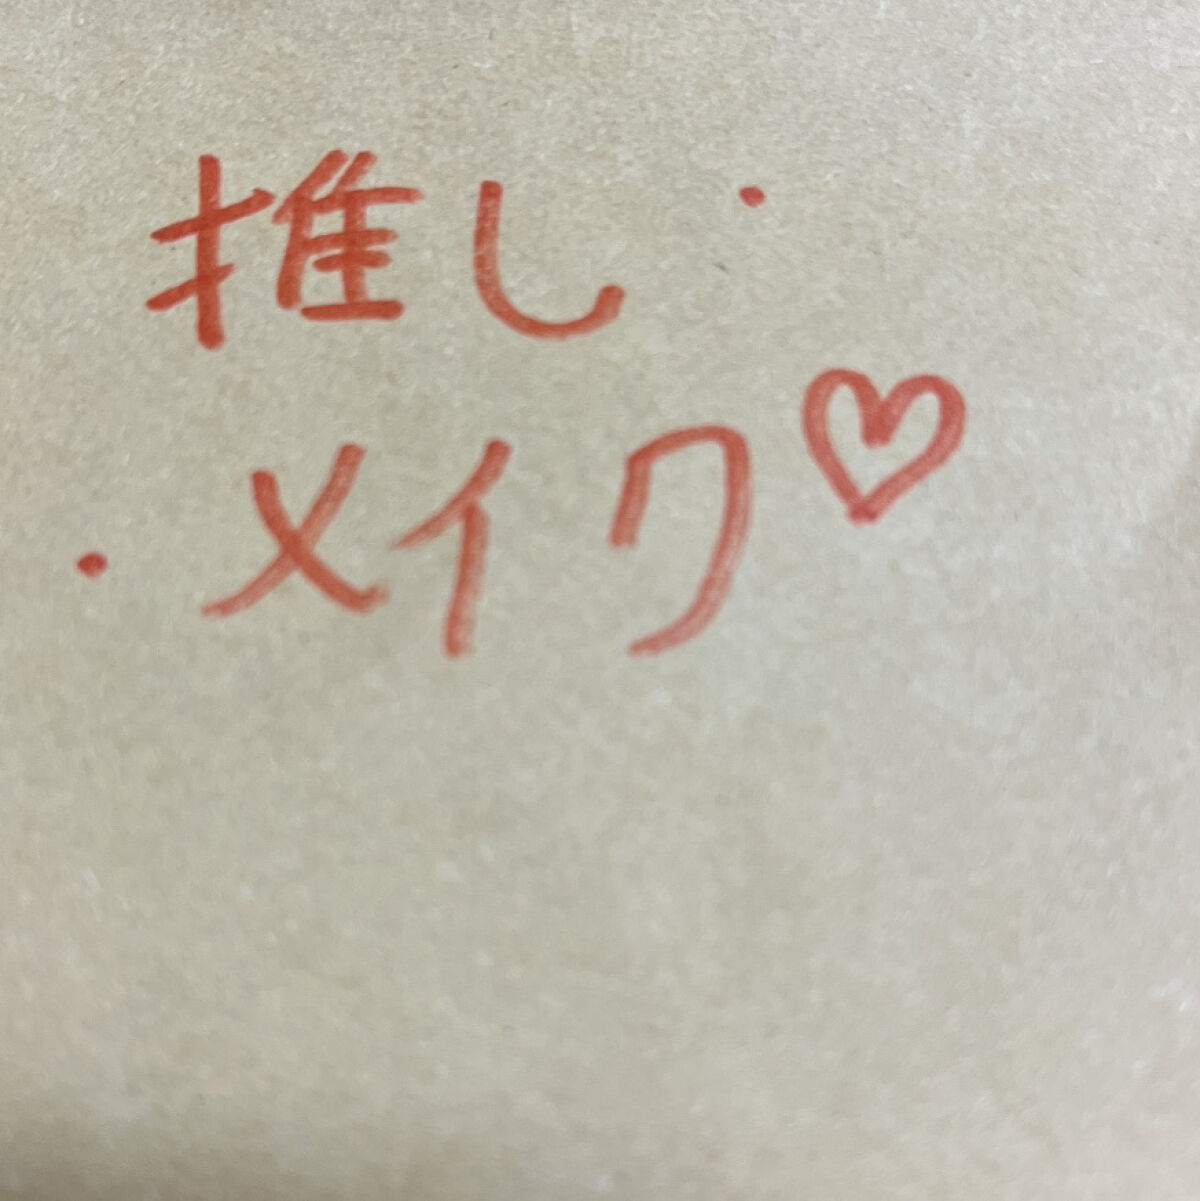 推し
メイク♡